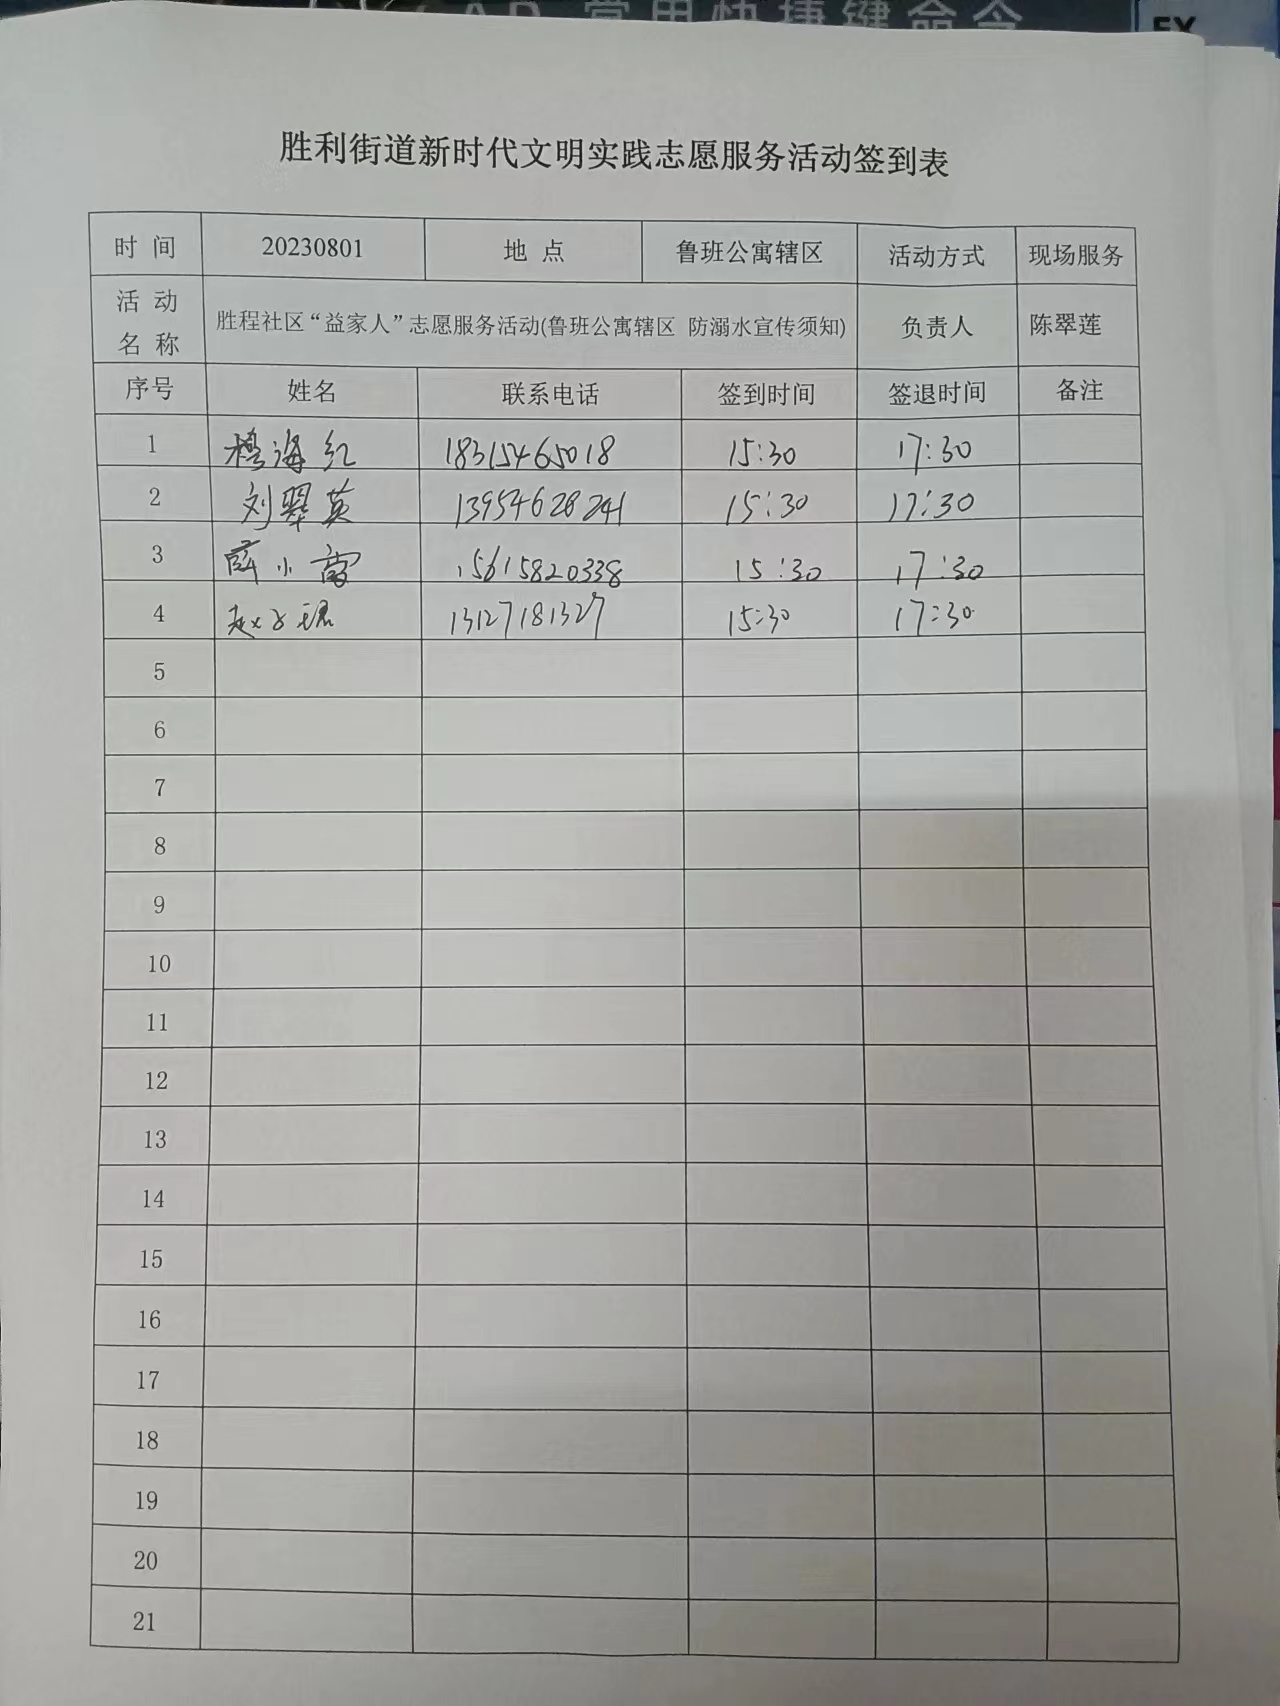 常用快捷键命令
胜利街道新时代文明实践志愿服务活动签到表
时 间 20230801 地 点 鲁班公寓辖区 活动方式 现场服务
活 动 名 称 胜程社区“益家人”志愿服务活动(鲁班公寓辖区 防溺水宣传须知) 负责人 陈翠莲
序号 姓名 联系电话 签到时间 签退时间 备注
1 穆海红 18315465018 15:30 17:30
2 刘翠英 13954628241 15:30 17:30
3 薛小雷 15615820338 15:30 17:30
4 赵子珺 13127181327 15:30 17:30
5
6
7
8
9
10
11
12
13
14
15
16
17
18
19
20
21